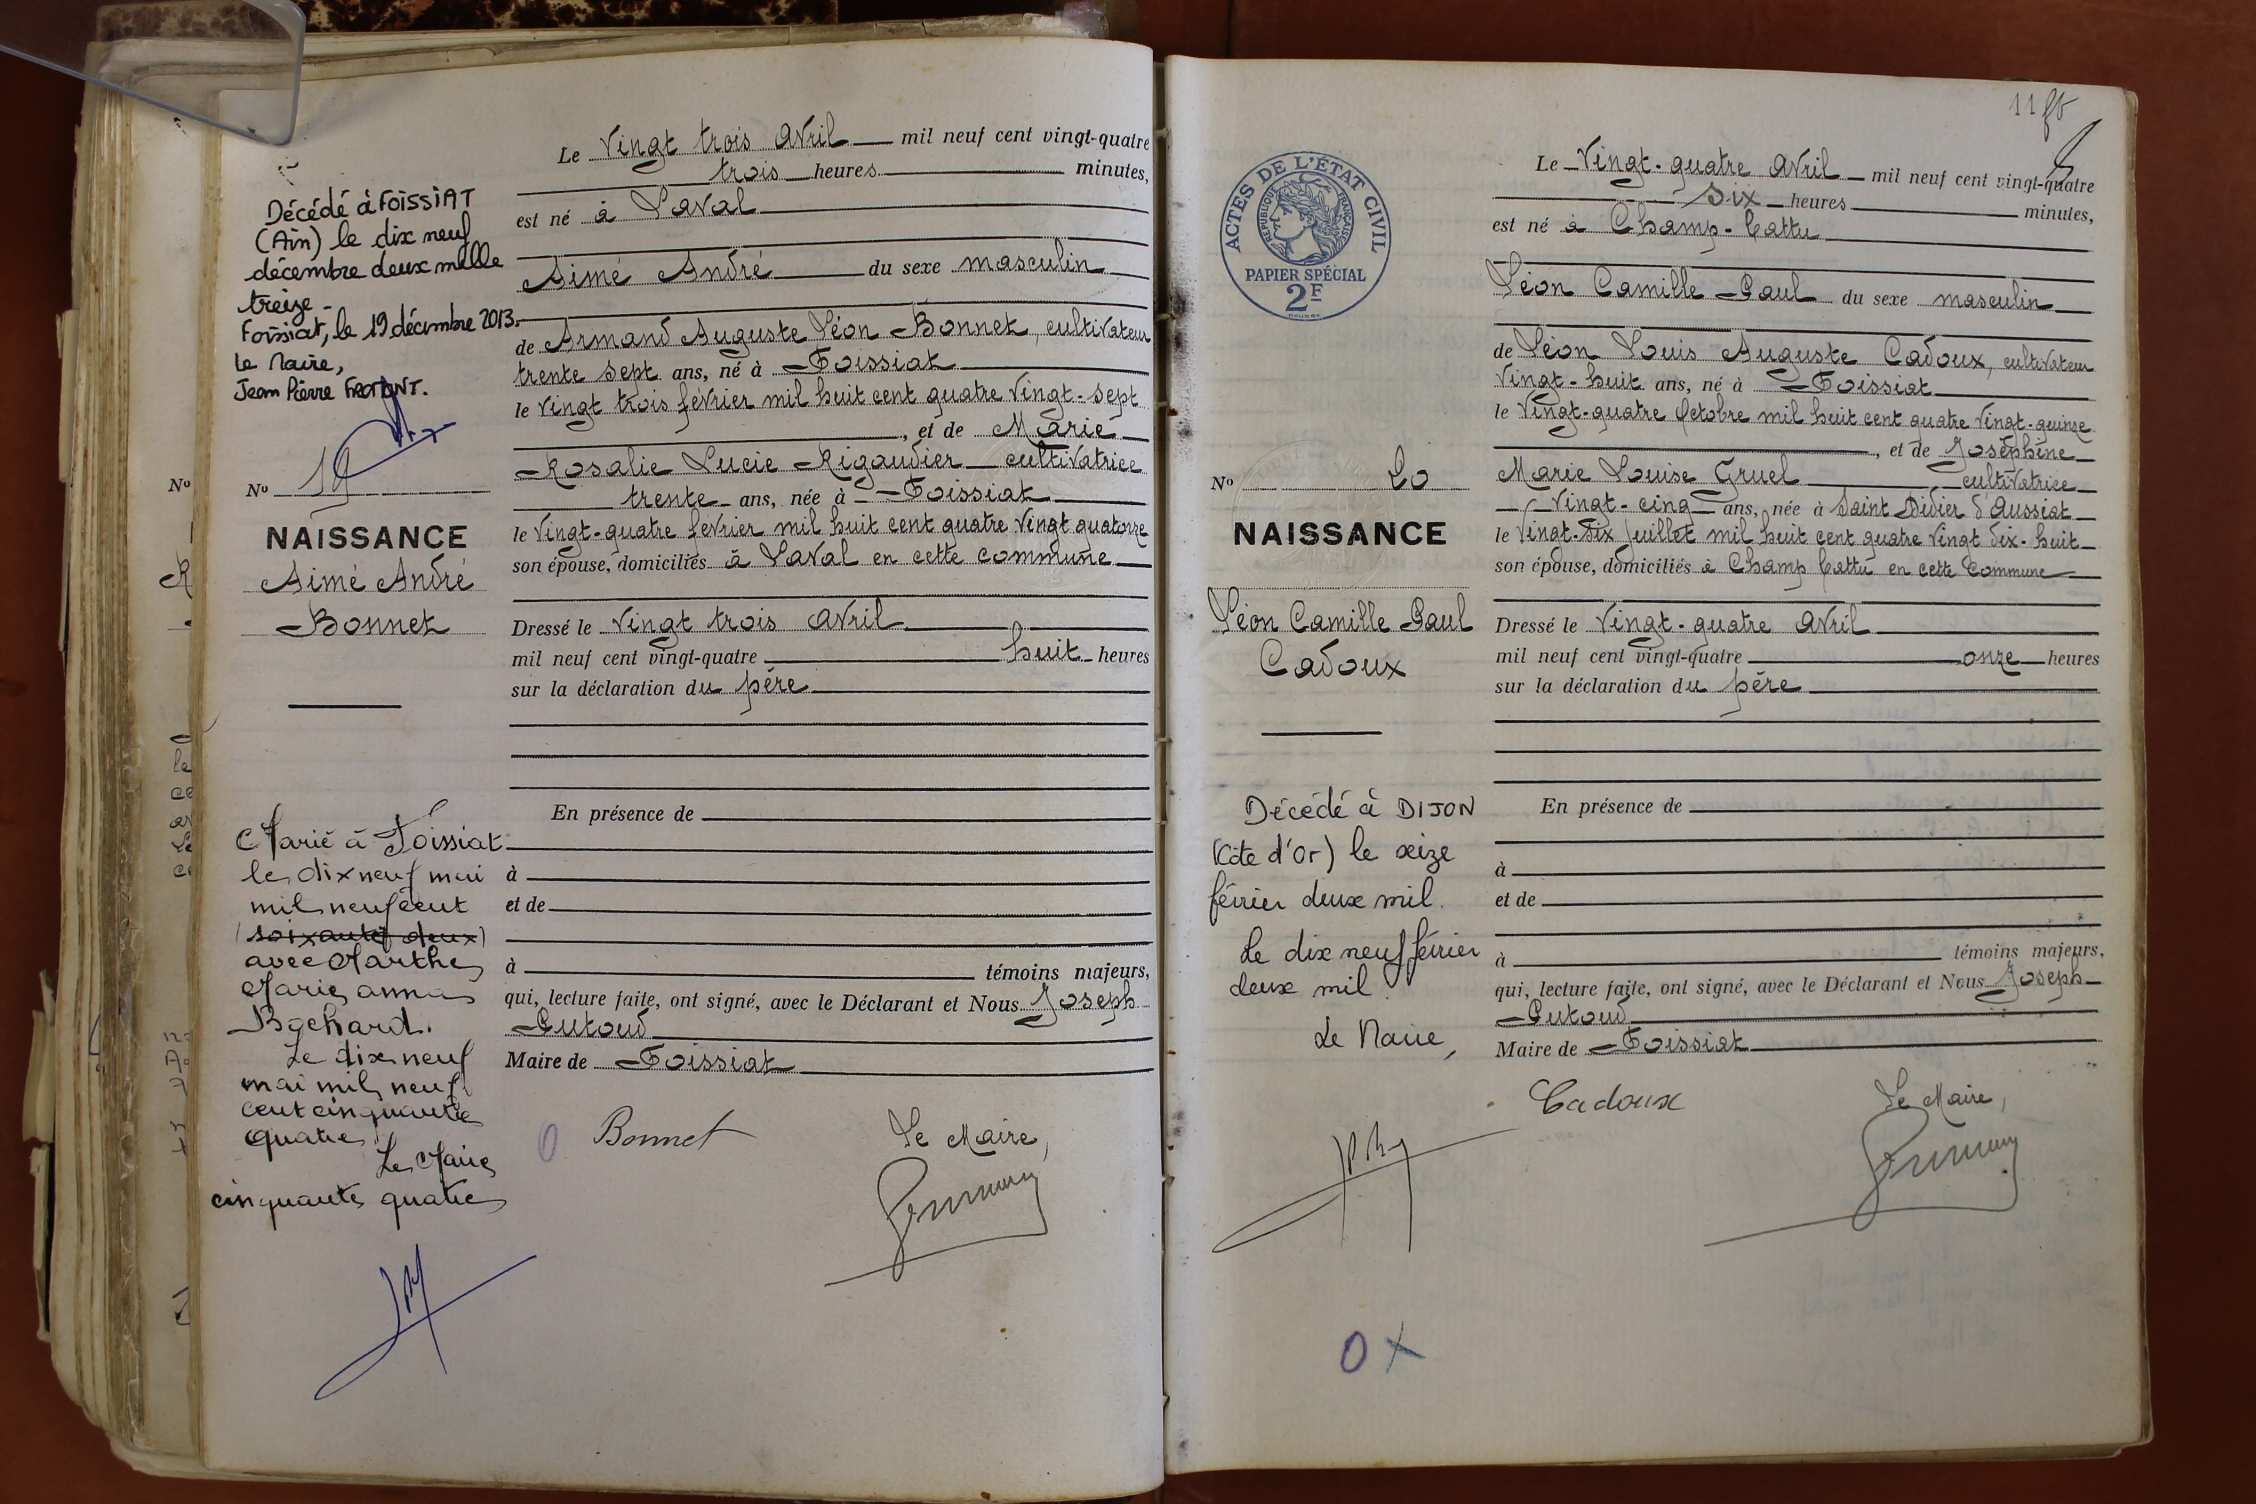 Le Vingt trois Avril mil neuf cent vingt-quatre
trois heures minutes,
est né à Laval
Aimé André du sexe masculin
de Armand Auguste Léon Bonnet, cultivateur
trente sept ans, né à Foissiat
le Vingt trois février mil huit cent quatre vingt-sept
, et de Marie
Rosalie Lucie Rigaudier cultivatrice
trente ans, née à Foissiat
le Vingt-quatre février mil huit cent quatre Vingt quatorze
son épouse, domiciliés à Laval en cette commune
Dressé le Vingt trois Avril
mil neuf cent vingt-quatre huit heures
sur la déclaration du père
En présence de
à
et de
à témoins majeurs,
qui, lecture faite, ont signé, avec le Déclarant et Nous Joseph
Putoud
Maire de Foissiat
Bonnet Le Maire,
Décédé à FOISSIAT
(Ain) le dix neuf
décembre deux mille
treize -
Foissiat, le 19 décembre 2013.
Le Maire,
Jean Pierre FROMONT.
No 19
NAISSANCE
Aimé André
Bonnet
Marié à Foissiat
le dix neuf mai
mil neuf cent
(soixante deux)
avec Marthe
Marie Anna
Bochard.
Le dix neuf
mai mil neuf
cent cinquante
quatre
Le Maire
cinquante quatre
No
11
Le Vingt-quatre Avril mil neuf cent vingt-quatre
Six heures minutes,
est né à Champ-Cattu
Léon Camille Paul du sexe masculin
de Léon Louis Auguste Cadoux, cultivateur
Vingt-huit ans, né à Foissiat
le Vingt-quatre Octobre mil huit cent quatre Vingt-quinze
, et de Joséphine
Marie Louise Gruel cultivatrice
Vingt-cinq ans, née à Saint Didier d'Aussiat
le Vingt-Six Juillet mil huit cent quatre Vingt dix-huit
son épouse, domiciliés à Champ Cattu en cette Commune
Dressé le Vingt-quatre Avril
mil neuf cent vingt-quatre onze heures
sur la déclaration du père
En présence de
à
et de
à témoins majeurs,
qui, lecture faite, ont signé, avec le Déclarant et Nous Joseph
Putoud
Maire de Foissiat
Cadoux Le Maire,
ACTES DE L'ÉTAT CIVIL
RÉPUBLIQUE FRANÇAISE
PAPIER SPÉCIAL
2F
No 20
NAISSANCE
Léon Camille Paul
Cadoux
Décédé à DIJON
(Côte d'Or) le seize
février deux mil.
Le dix neuf février
deux mil.
Le Maire,